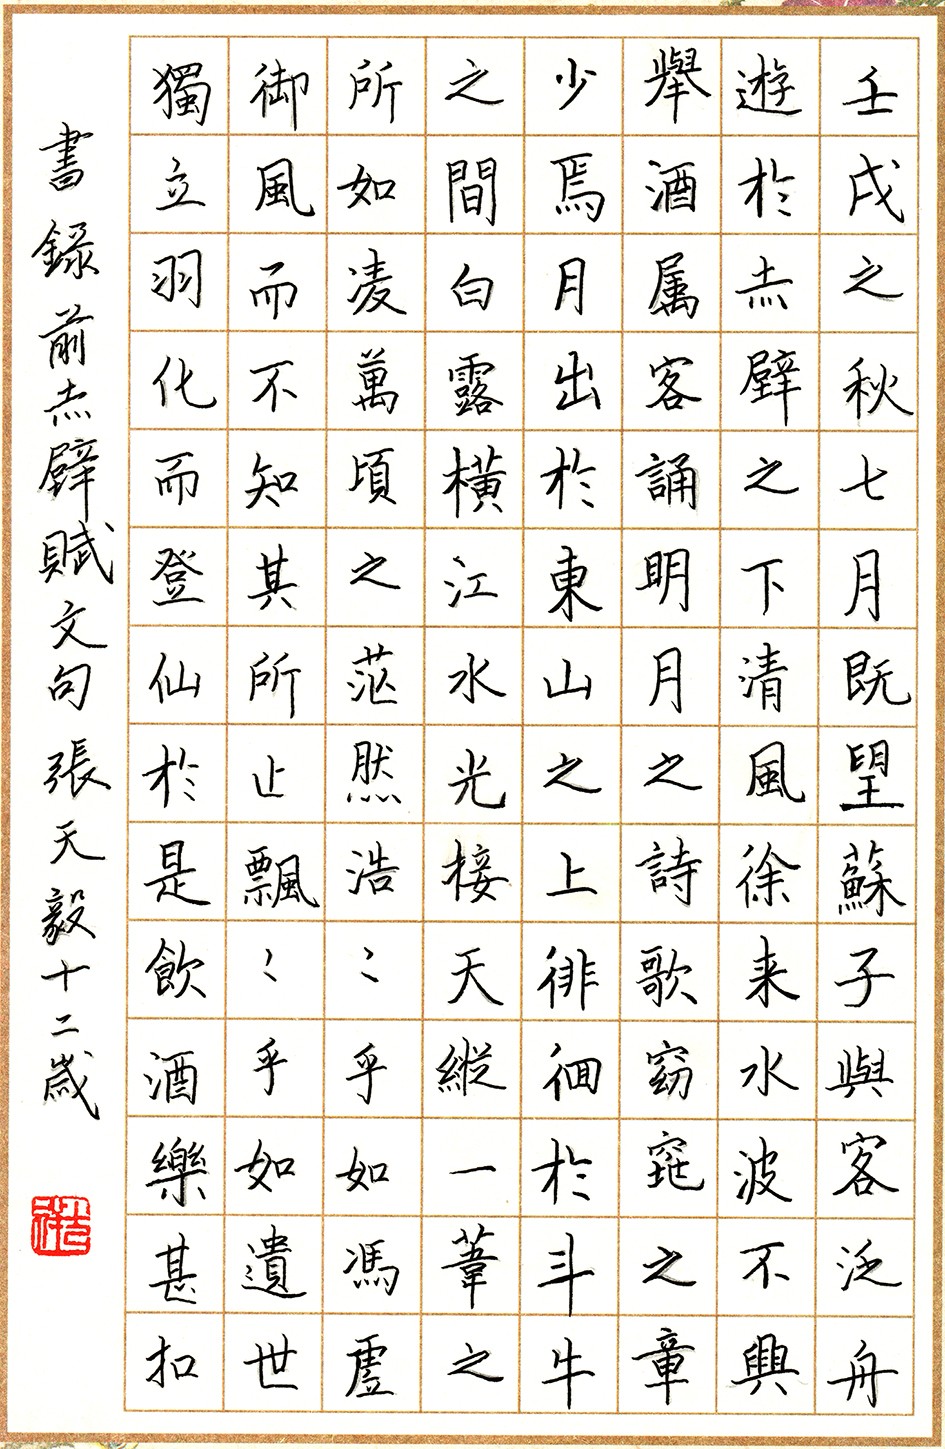 壬戌之秋七月既望蘇子與客泛舟
遊於赤壁之下清風徐来水波不興
舉酒属客誦明月之詩歌窈窕之章
少焉月出於東山之上徘徊於斗牛
之間白露橫江水光接天縱一葦之
所如凌萬頃之茫然浩〻乎如馮虛
御風而不知其所止飄〻乎如遺世
獨立羽化而登仙於是飲酒樂甚扣
書錄前赤壁賦文句 張天毅十二歲